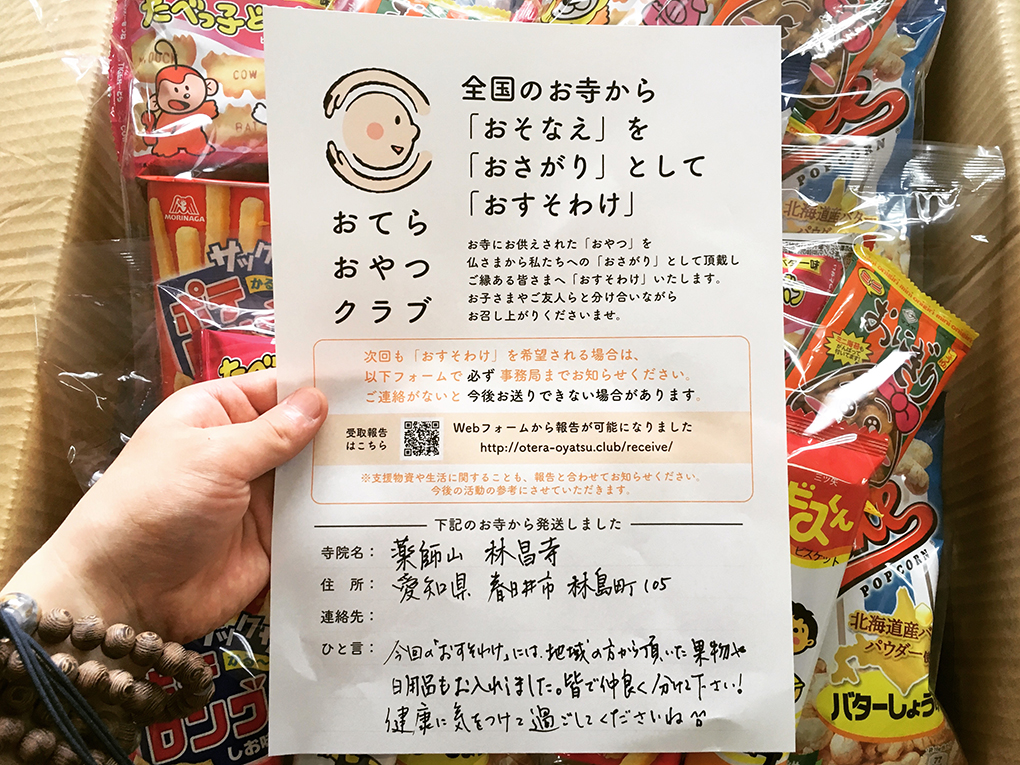 たべっ子ど
DUCK
COW
MORINAGA
サック
ポテ
全国のお寺から
「おそなえ」を
「おさがり」として
「おすそわけ」
おてら
おやつ
クラブ
お寺にお供えされた「おやつ」を
仏さまから私たちへの「おさがり」として頂戴し
ご縁ある皆さまへ「おすそわけ」いたします。
お子さまやご友人らと分け合いながら
お召し上がりくださいませ。
次回も「おすそわけ」を希望される場合は、
以下フォームで 必ず 事務局までお知らせください。
ご連絡がないと 今後お送りできない場合があります。
受取報告
はこちら
Webフォームから報告が可能になりました
http://otera-oyatsu.club/receive/
※支援物資や生活に関することも、報告と合わせてお知らせください。
今後の活動の参考にさせていただきます。
下記のお寺から発送しました
寺院名： 薬師山 林昌寺
住　所： 愛知県 春日井市 林島町105
連絡先：
ひと言： 今回の「おすそわけ」には、地域の方から頂いた果物や
日用品もお入れしました。皆で仲良く分けて下さい！
健康に気をつけて過ごしてくださいね
POPCORN
北海道産バター
パウダー
おにぎり
ビスケット
POPCORN
北海道産バ
パウダー使
バターしょうゆ
サック
ポテ
ロング
しお味